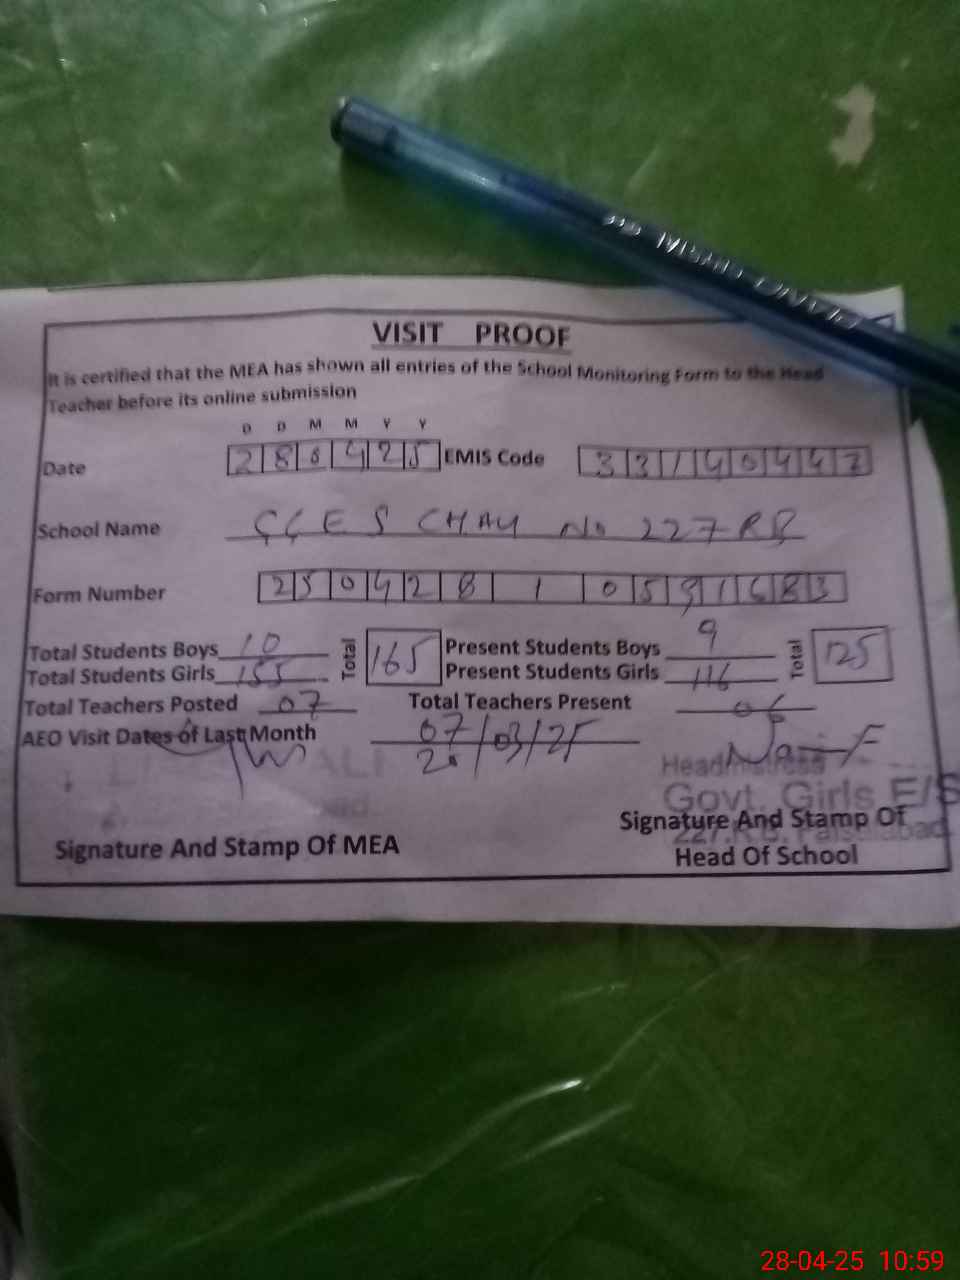 VISIT PROOF
It is certified that the MEA has shown all entries of the School Monitoring Form to the Head
Teacher before its online submission
D D M M Y Y
Date 280425 EMIS Code 33140447
School Name GGES CHAK No 227 RB
Form Number 250428 1 0591683
Total Students Boys 10 Total 165 Present Students Boys 9 Total 125
Total Students Girls 155 Present Students Girls 116
Total Teachers Posted 07 Total Teachers Present 06
AEO Visit Dates of Last Month 07/03/25
Headmistress
Govt. Girls E/S
Signature And Stamp Of
227.R.B. Faisalabad
Signature And Stamp Of MEA Head Of School
28-04-25 10:59